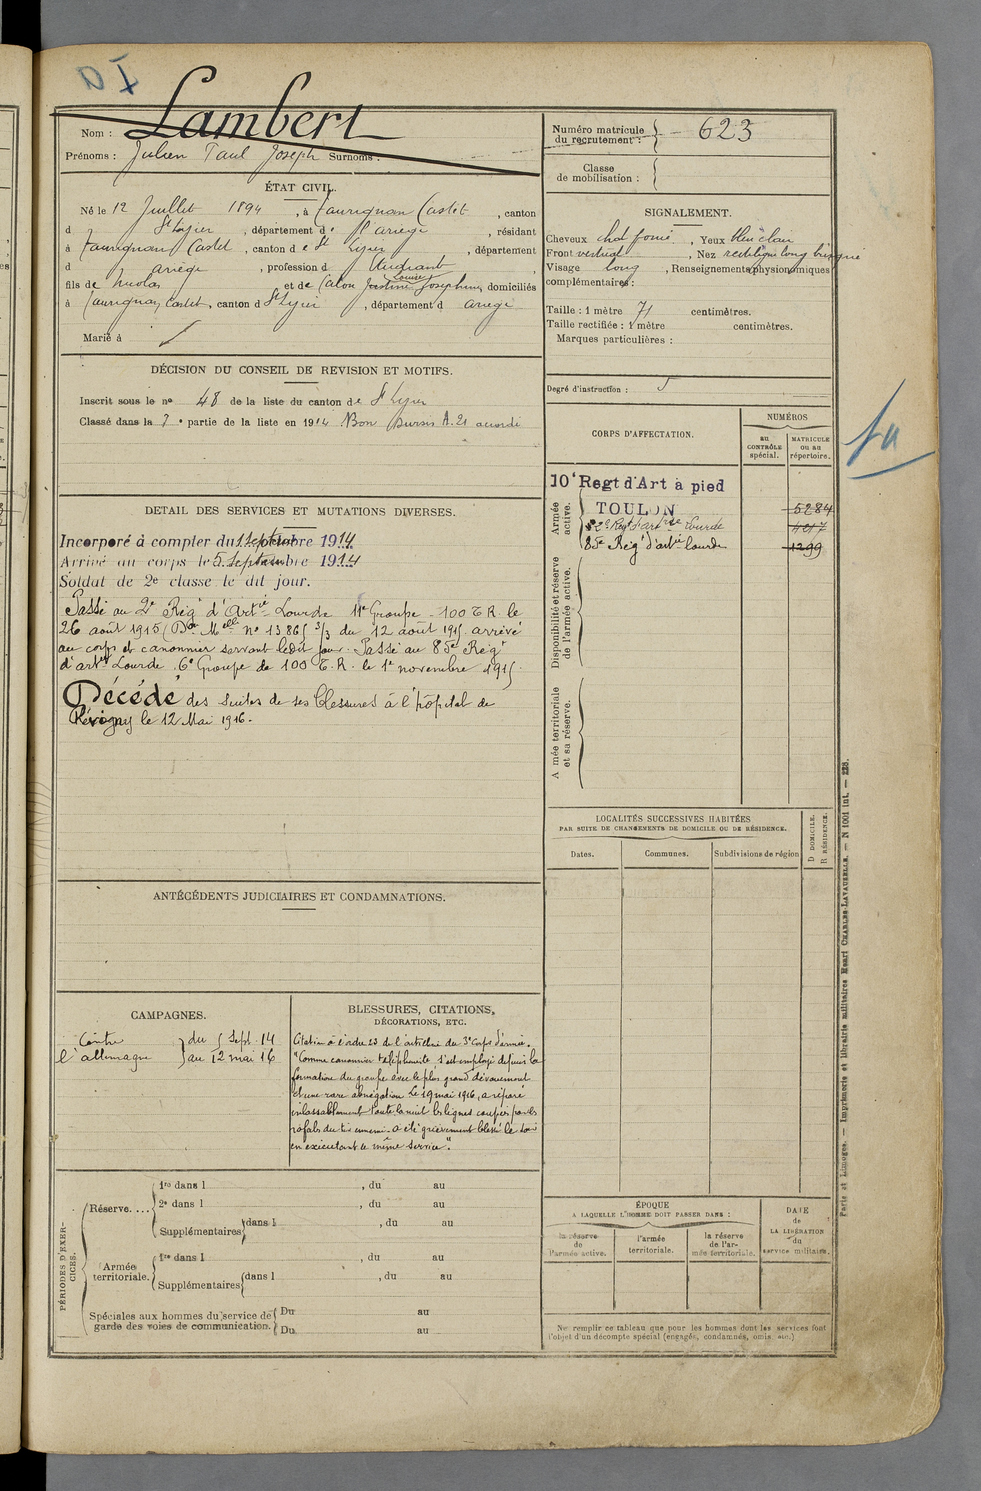 Ia
Nom : Lambert
Prénoms : Julien Paul Joseph Surnoms :
Numéro matricule du recrutement : 623
Classe de mobilisation :
ÉTAT CIVIL.
Né le 12 Juillet 1894, à Taurignan Castet, canton
d St Lizier, département d l'ariège, résidant
à Taurignan Castet, canton de St Lizier, département
d ariège, profession d étudiant
fils de Nicolas et de Josephine, domiciliés
Louise
à Taurignan Castet, canton d St Lizier, département d ariège
Marié à
SIGNALEMENT.
Cheveux chat foncé, Yeux bleu clair
Front vertical, Nez rectiligne long busqué
Visage long, Renseignements physionomiques
complémentaires :
Taille : 1 mètre 71 centimètres.
Taille rectifiée : 1 mètre centimètres.
Marques particulières :
Degré d'instruction :
DÉCISION DU CONSEIL DE REVISION ET MOTIFS.
Inscrit sous le no 48 de la liste du canton de St Lizier
Classé dans la e partie de la liste en 1914 Bon Sursis A. 21 accordé
CORPS D'AFFECTATION.
NUMÉROS
au CONTRÔLE spécial.
MATRICULE ou au répertoire.
Ia
Armée active.
10e Regt d'Art à pied
TOULON 5284
2e Regt d'artrie Lourde
85e Reigt d'artie lourde 1299
Disponibilité et réserve de l'armée active.
Armée territoriale et sa réserve.
DETAIL DES SERVICES ET MUTATIONS DIVERSES.
Incorporé à compter du 1 septembre 1914
Arrivé au corps le 5 septembre 1914
Soldat de 2e classe le dit jour.
Passé au 2e Regt d'Artie Lourde 11e Groupe - 100 T.R. le
26 août 1915 (Don Melle no 13865 3/3 du 12 août 1915 arrivé
au corps et canonnier servant ledit jour. Passé au 85e Reigt
d'artie Lourde, 6e Groupe de 100 T.R. le 1er novembre 1915.
Décédé des suites de ses blessures à l'hôpital de
Révigny le 12 Mai 1916.
LOCALITÉS SUCCESSIVES HABITÉES
PAR SUITE DE CHANGEMENTS DE DOMICILE OU DE RÉSIDENCE.
Dates.
Communes.
Subdivisions de région
D DOMICILE.
R RÉSIDENCE.
ANTÉCÉDENTS JUDICIAIRES ET CONDAMNATIONS.
CAMPAGNES.
Contre du 5 Sept. 14
l'allemagne au 12 mai 16
BLESSURES, CITATIONS,
DÉCORATIONS, ETC.
Citation à l'ordre 23 de l'artillerie du 3e Corps d'armée.
"Comme canonnier téléphoniste s'est employé depuis la
formation du groupe avec le plus grand dévouement
et une rare abnégation Le 19 mai 1916, a réparé
inlassablement toute la nuit les lignes coupées par les
rafales du tir ennemi. a été grièvement blessé le soir
en exécutant le même service".
PÉRIODES D'EXERCICES.
Réserve.....
1re dans l , du au
2e dans l , du au
Supplémentaires dans l , du au
Armée territoriale.
1re dans l , du au
Supplémentaires dans l , du au
Spéciales aux hommes du service de garde des voies de communication.
Du au
Du au
ÉPOQUE
A LAQUELLE L'HOMME DOIT PASSER DANS :
la réserve de l'armée active.
l'armée territoriale.
la réserve de l'armée territoriale.
DATE de LA LIBÉRATION du service militaire.
Ne remplir ce tableau que pour les hommes dont les services font
l'objet d'un décompte spécial (engagés, condamnés, omis, etc.)
Paris et Limoges. — Imprimerie et librairie militaires Henri CHARLES-LAVAUZELLE. — N 1001 int. — 228.